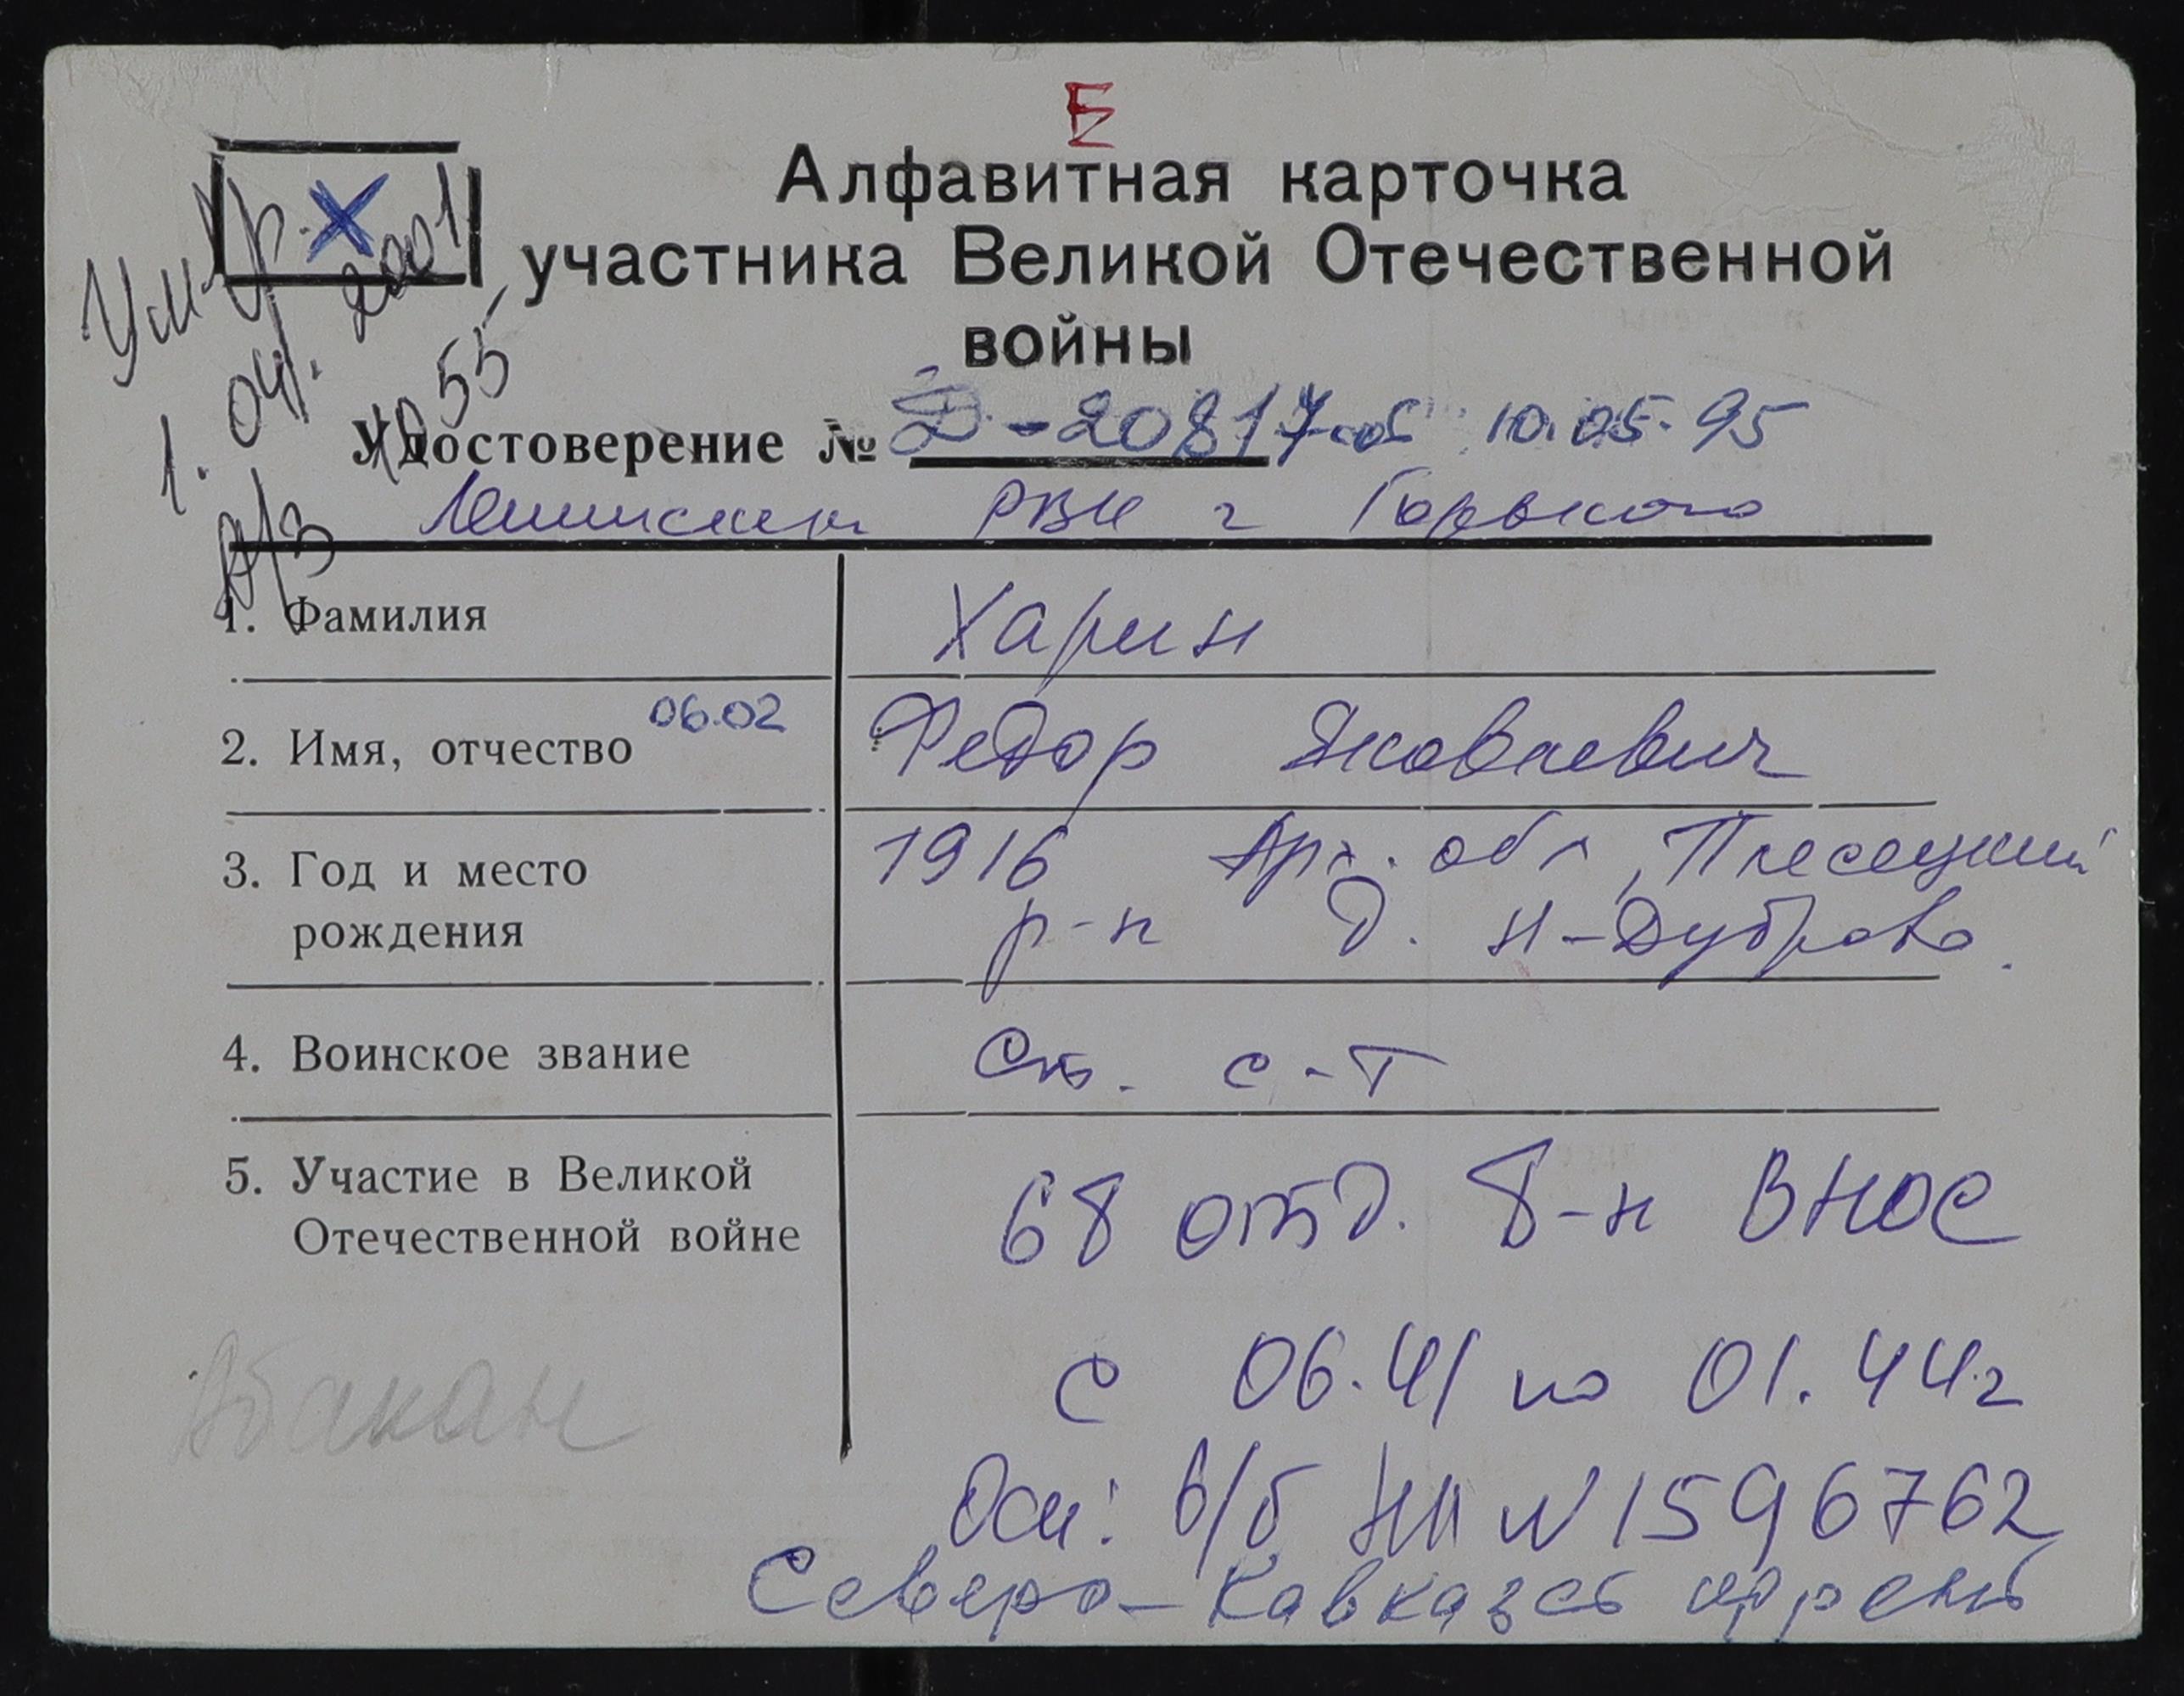 Е
Алфавитная карточка
участника Великой Отечественной
войны
Х
Умер.
1. 04. 2001
а/з 55
Удостоверение № Д-208174 от 10.05.95
Ленинским РВК г Горького
1. Фамилия Харин
2. Имя, отчество 06.02 Федор Яковлевич
3. Год и место 1916 Арх. обл, Плесецкий
рождения р-н д. Н-Дуброва.
4. Воинское звание Ст. с-т
5. Участие в Великой 68 отд. б-н ВНОС
Отечественной войне
с 06.41 по 01.44г
Абакан
Осн: в/б НП №1596762
Северо-Кавказск фронт